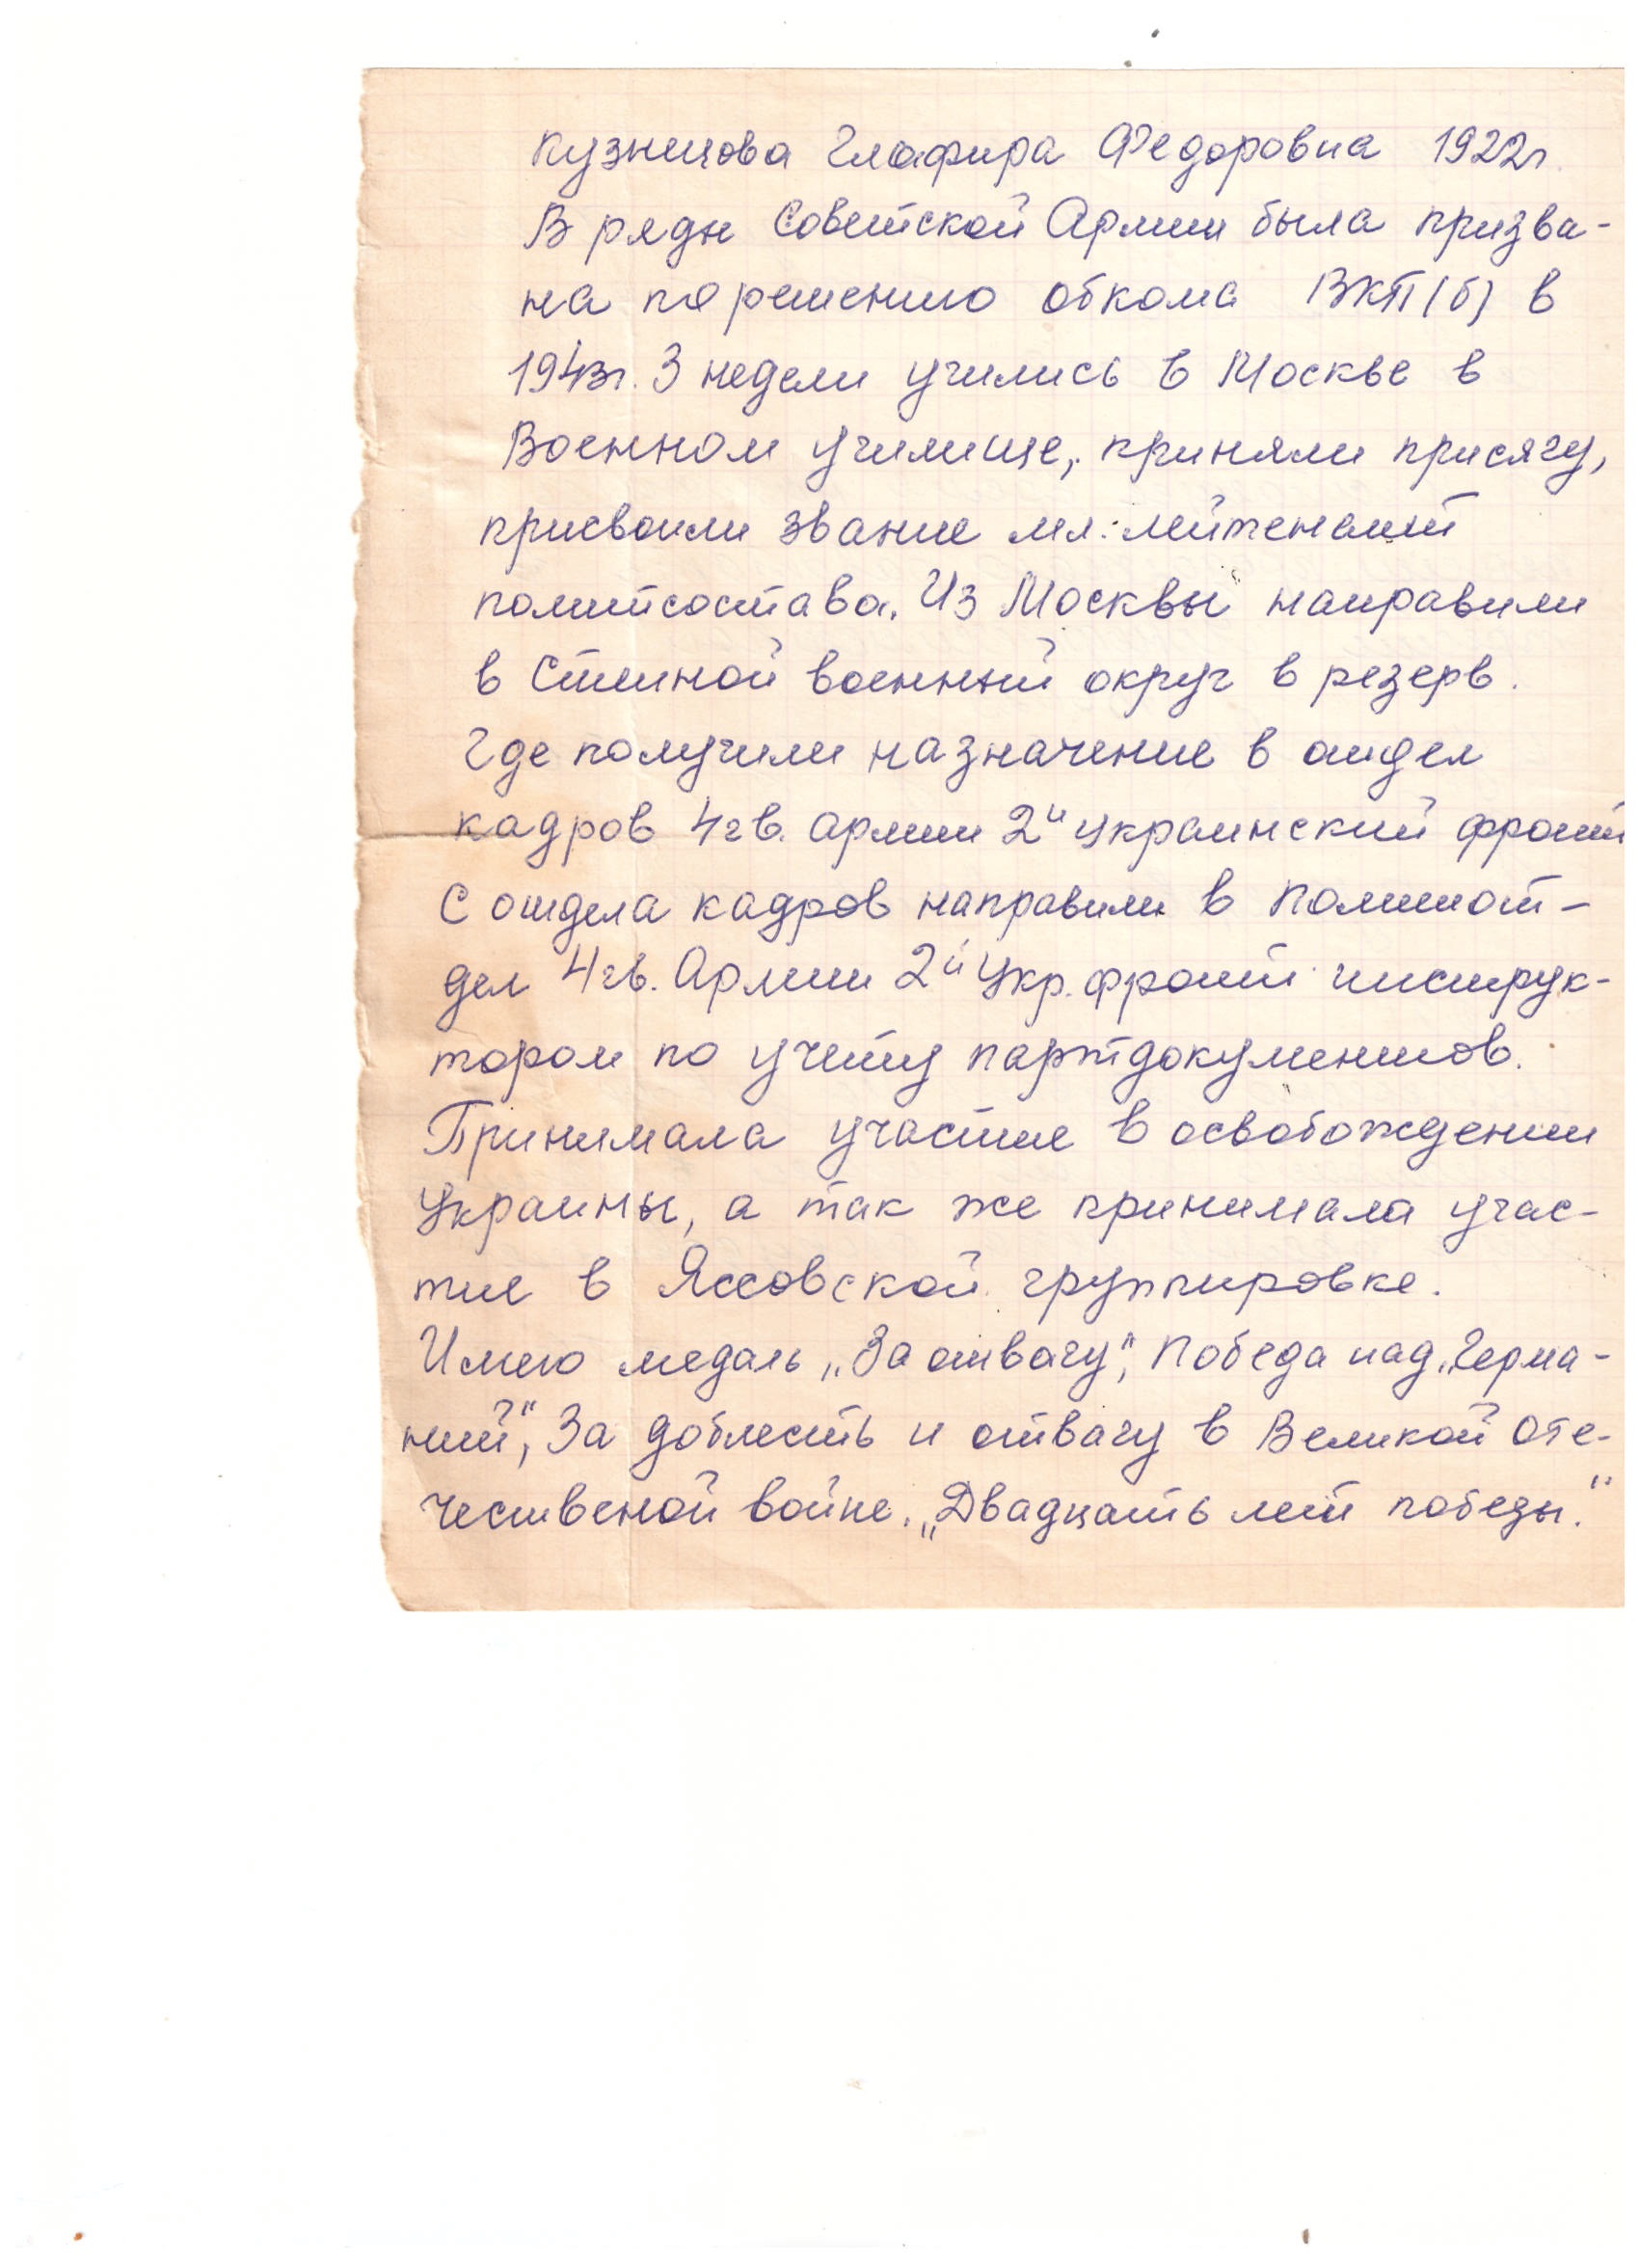 Кузнецова Глафира Федоровна 1922г.
В ряды Советской Армии была призва-
на по решению обкома ВКП(б) в
1943г. 3 недели учились в Москве в
Военном училище, приняли присягу,
присвоили звание мл. лейтенант
политсостава. Из Москвы направили
в Степной военный округ в резерв.
Где получили назначение в отдел
кадров 4 гв. армии 2й украинский фронт
С отдела кадров направили в Политот-
дел 4 гв. Армии 2й Укр. фронт инструк-
тором по учету партдокументов.
Принимала участие в освобождении
Украины, а так же принимала учас-
тие в Яссовской группировке.
Имею медаль „За отвагу", Победа над „Герма-
ний", За доблесть и отвагу в Великой Оте-
чественой войне. „Двадцать лет победы."